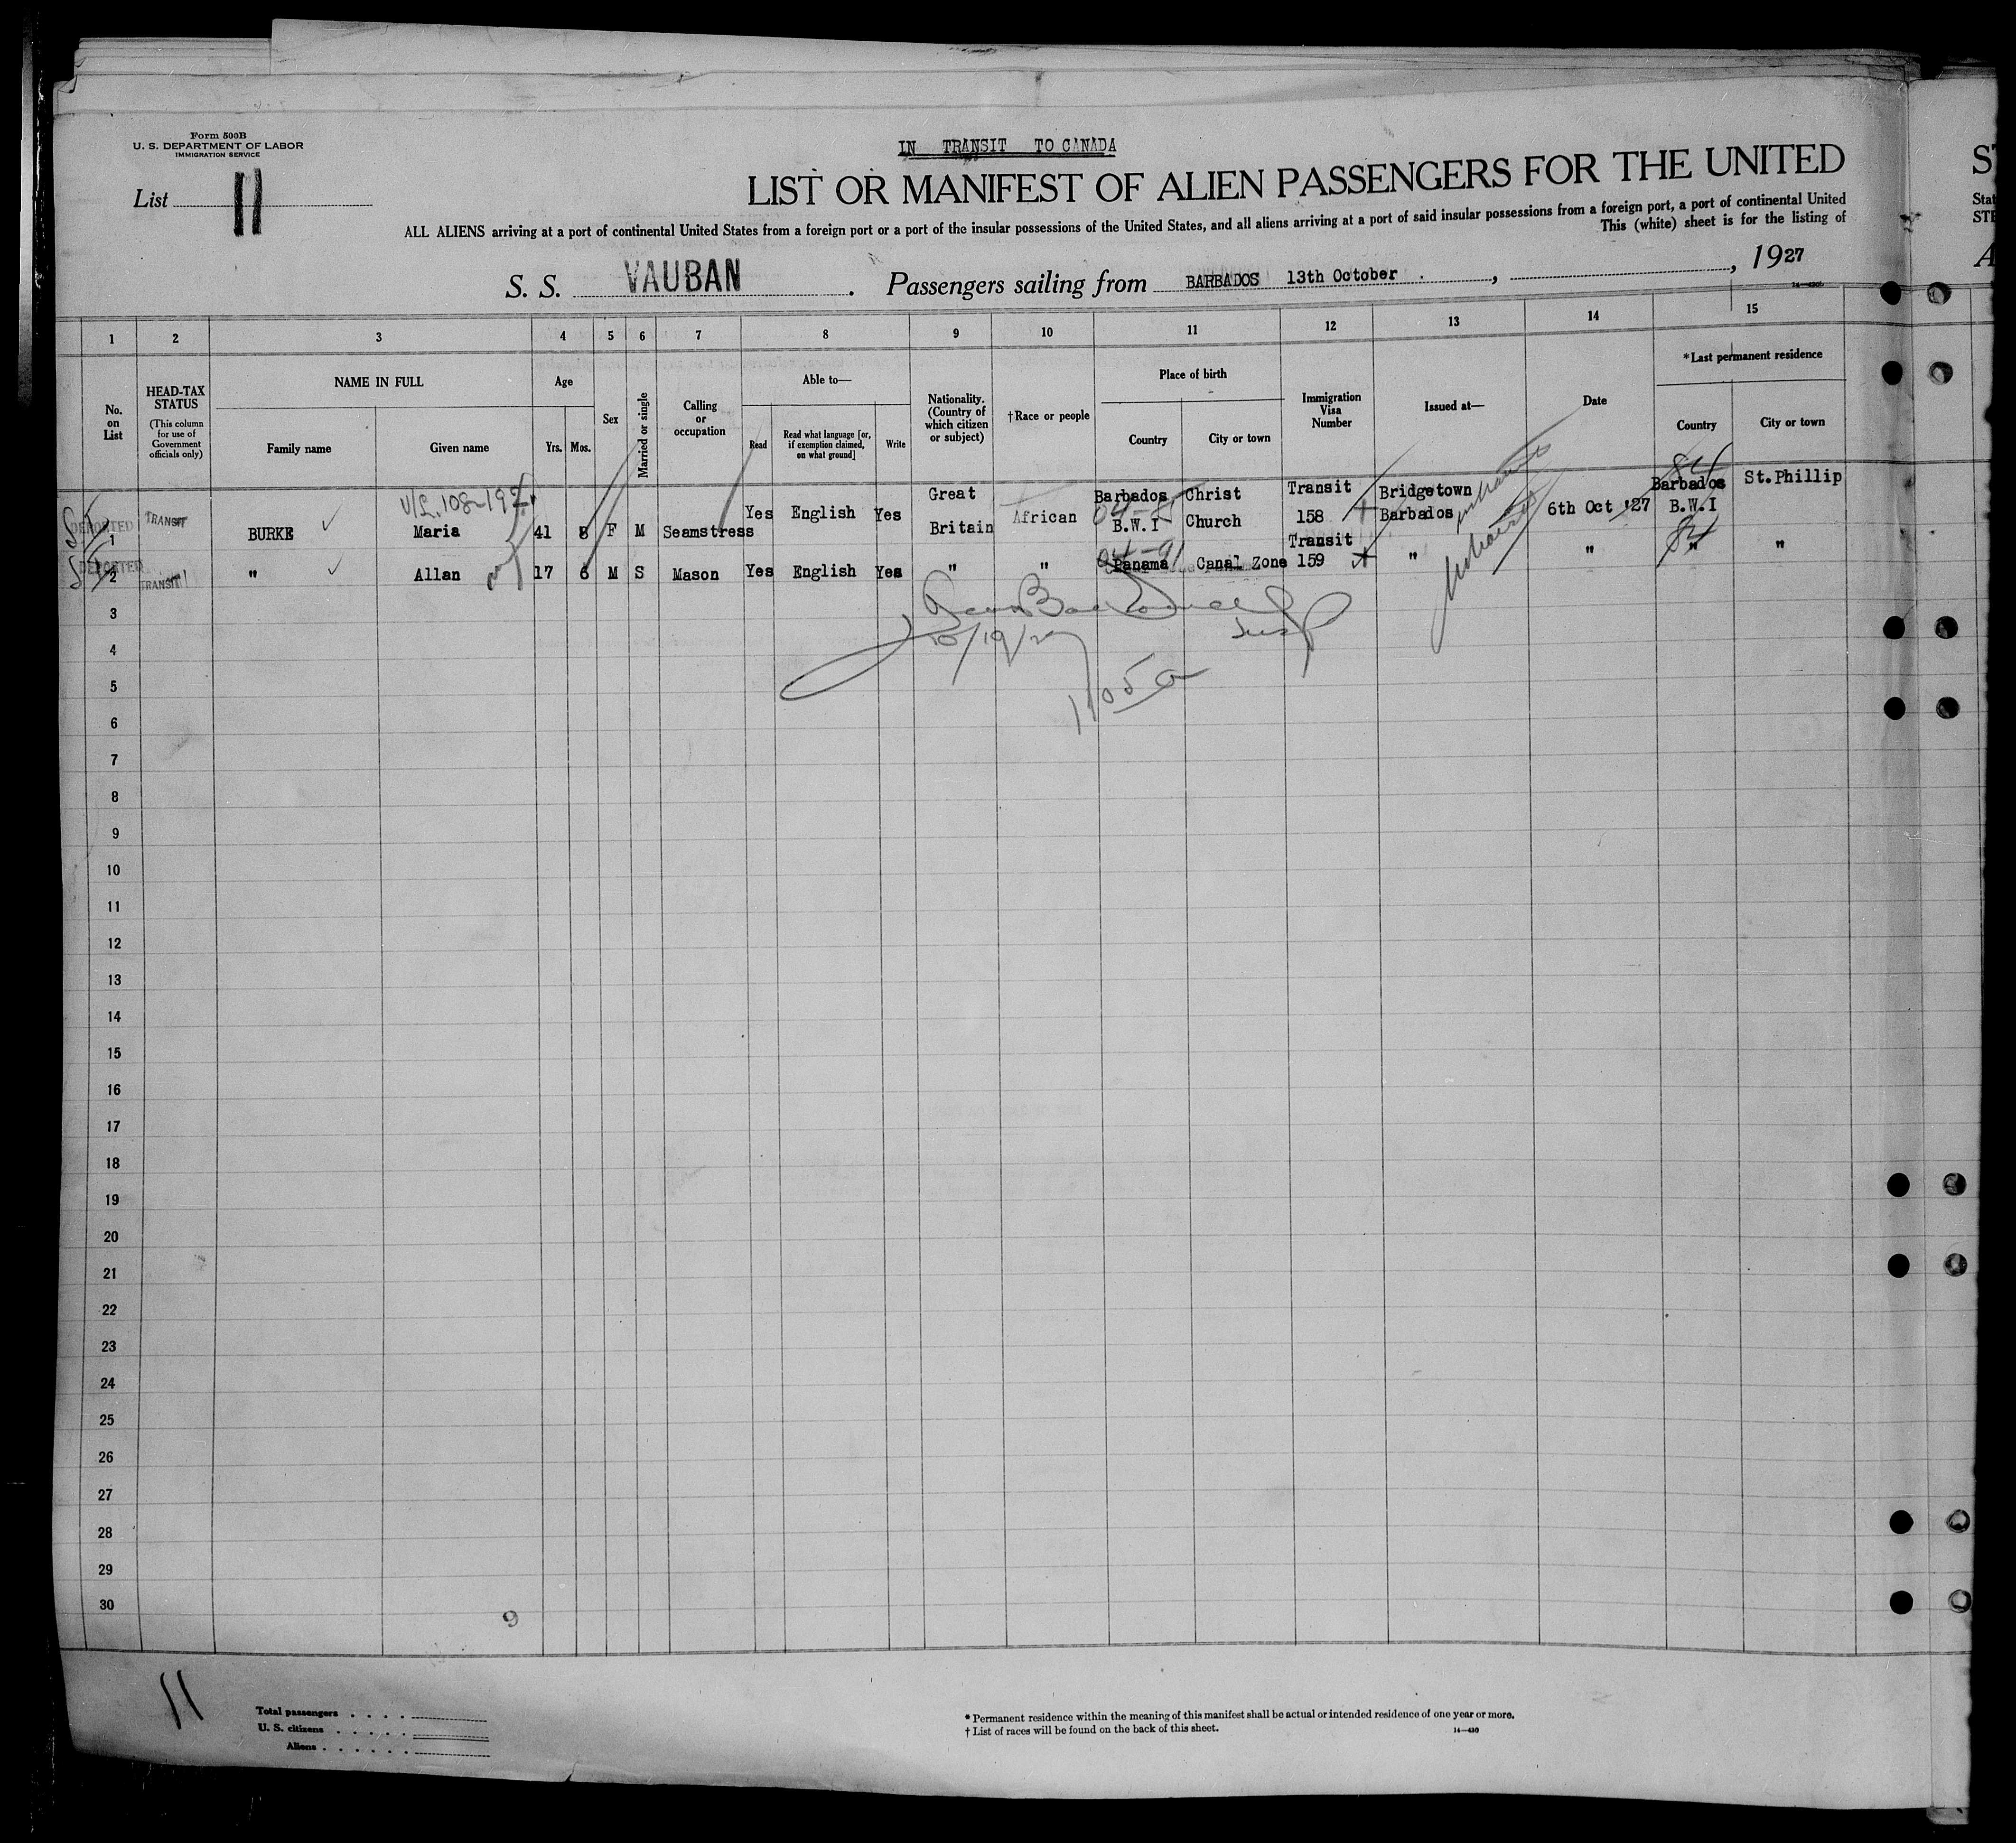 Form 500B
U. S. DEPARTMENT OF LABOR
IMMIGRATION SERVICE
IN TRANSIT TO CANADA
List 11
LIST OR MANIFEST OF ALIEN PASSENGERS FOR THE UNITED
ST
ALL ALIENS arriving at a port of continental United States from a foreign port or a port of the insular possessions of the United States, and all aliens arriving at a port of said insular possessions from a foreign port, a port of continental United
Stat
This (white) sheet is for the listing of
STE
S. S. VAUBAN. Passengers sailing from BARBADOS 13th October, , 1927
A
1 2 3 4 5 6 7 8 9 10 11 12 13 14 15
No. on List
HEAD-TAX STATUS
(This column for use of Government officials only)
NAME IN FULL
Family name
Given name
Age
Yrs.
Mos.
Sex
Married or single
Calling or occupation
Able to—
Read
Read what language [or, if exemption claimed, on what ground]
Write
Nationality. (Country of which citizen or subject)
†Race or people
Place of birth
Country
City or town
Immigration Visa Number
Issued at—
Date
*Last permanent residence
Country
City or town
84
DEPORTED
TRANSIT
1 BURKE Maria 41 8 F M Seamstress Yes English Yes Great Britain African Barbados B.W.I Christ Church Transit 158 Bridgetown Barbados 6th Oct '27 Barbados B.W.I St.Phillip
84
DEPORTED
TRANSIT
2 " Allan 17 6 M S Mason Yes English Yes " " Panama Canal Zone Transit 159 " " " "
10/19/27
Insp
3
4
5
6
7
8
9
10
11
12
13
14
15
16
17
18
19
20
21
22
23
24
25
26
27
28
29
30
9
11
Total passengers
U. S. citizens
Aliens
* Permanent residence within the meaning of this manifest shall be actual or intended residence of one year or more.
† List of races will be found on the back of this sheet.
14—430